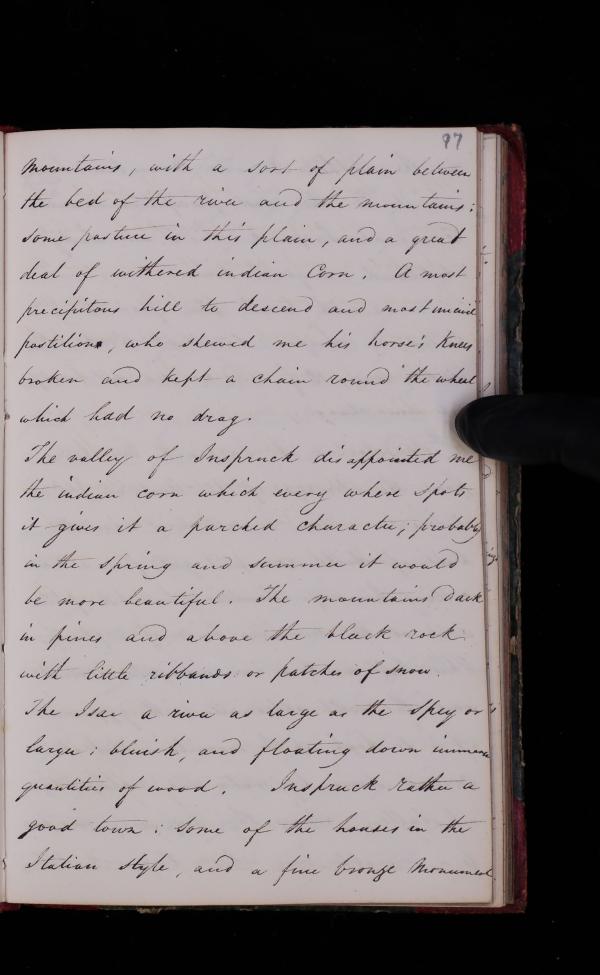 97
mountains, with a sort of plain between
the bed of the river and the mountains:
some pasture in this plain, and a great
deal of withered indian Corn. A most
precipitous hill to descend and most uncivil
postilions, who shewed me his horse's Knees
broken and kept a chain round the wheel
which had no drag.
The valley of Inspruck disappointed me
the indian corn which every where spots
it gives it a parched character; probably
in the spring and summer it would
be more beautiful. The mountains dark
in pines and above the black rock
with little ribbands or patches of snow.
The Isar a river as large as the Spey or
larger: bluish, and floating down immense
quantities of wood. Inspruck rather a
good town: some of the houses in the
Italian style, and a fine bronze Monument